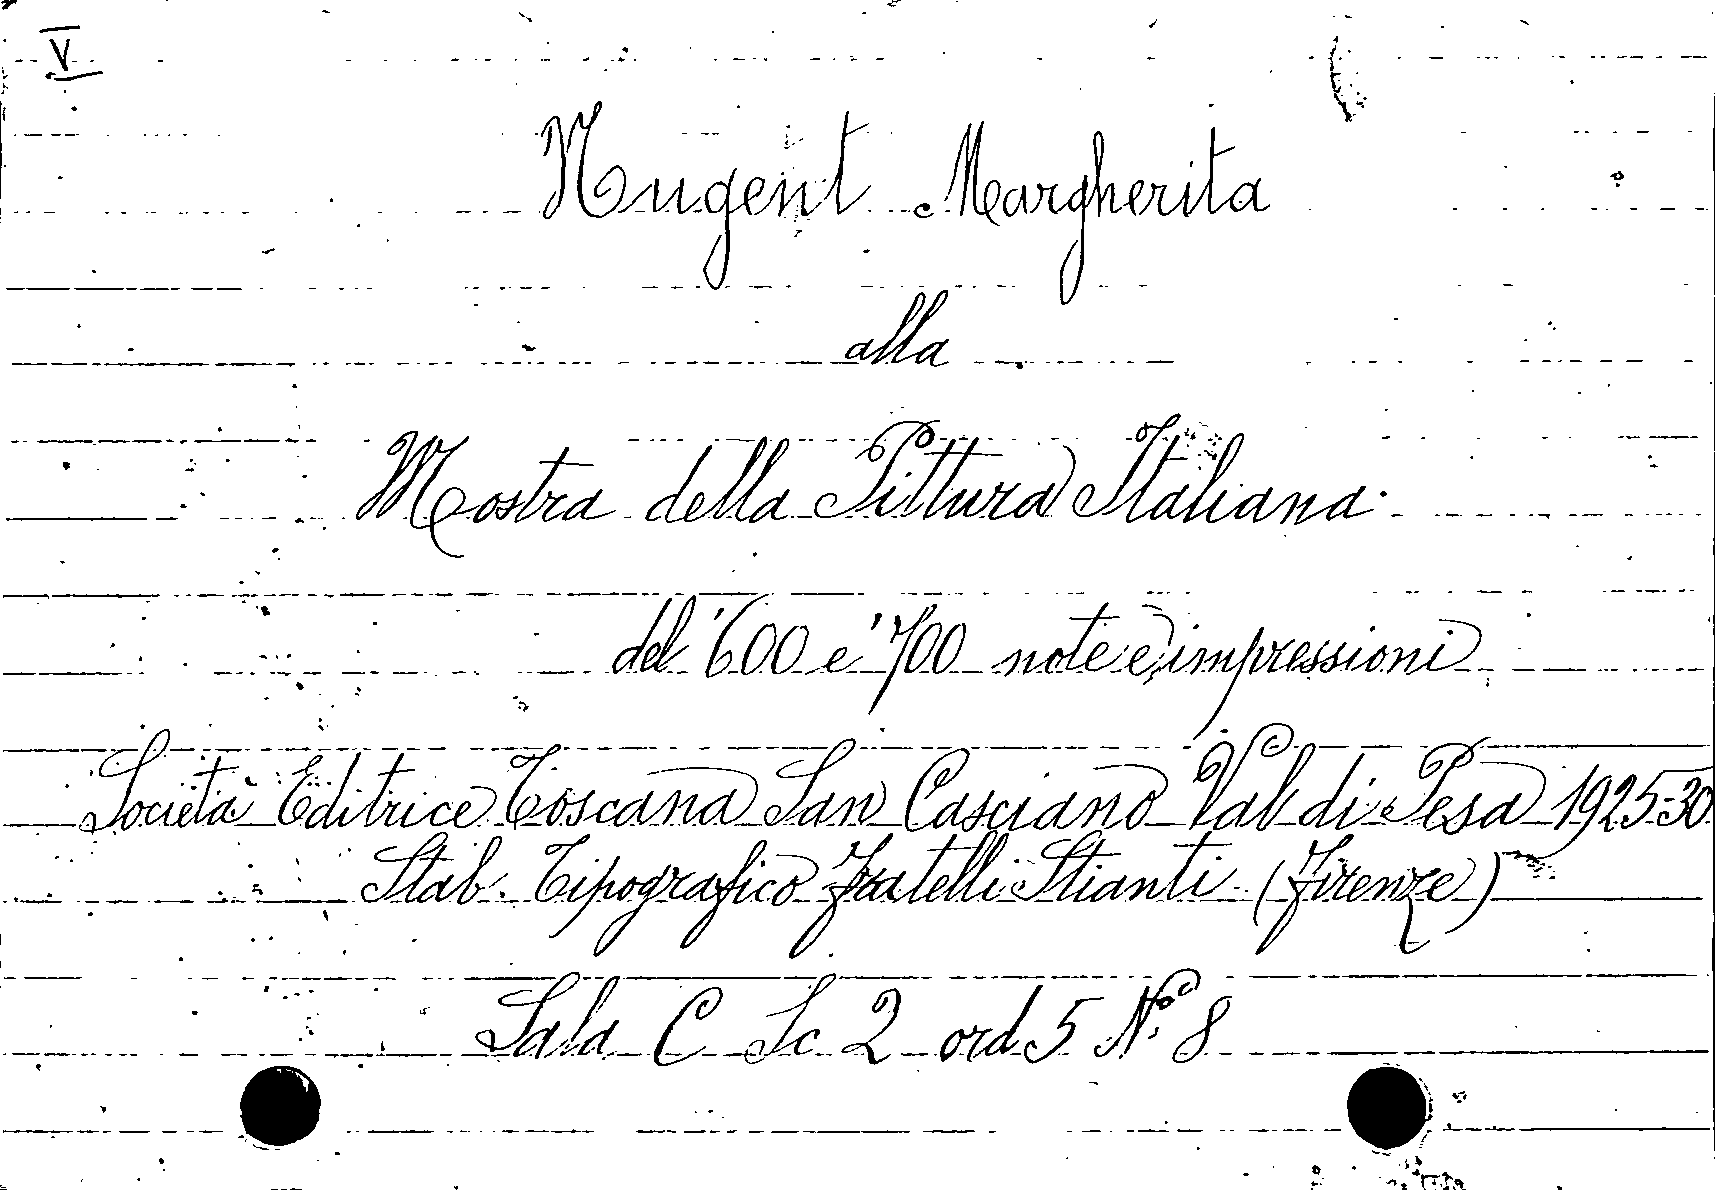 V
Nugent Margherita
alla
Mostra della Pittura Italiana
del '600 e '700 note e impressioni
Società Editrice Toscana San Casciano Val di Pesa 1925-30
Stab. Tipografico Fratelli Stianti (Firenze)
Sala C Sc 2 ord 5 N° 8